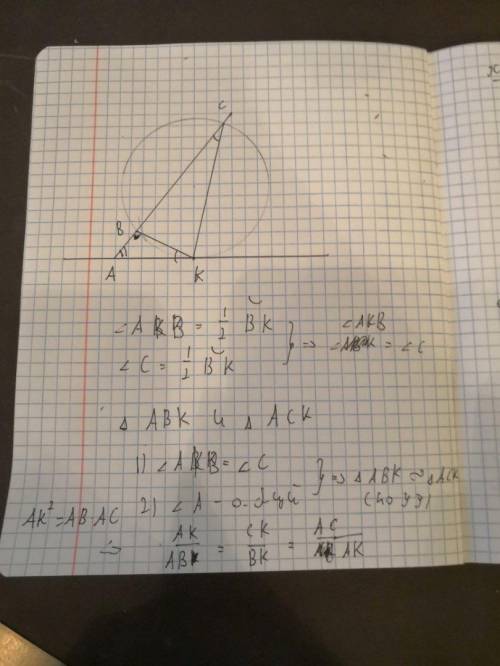 C
B
A K
∠AKB = 1/2 ◡BK
∠C = 1/2 ◡BK } ⇒ ∠AKB = ∠C
△ ABK и △ ACK
1) ∠AKB = ∠C
2) ∠A - общий } ⇒ △ABK ~ △ACK
(по УУ)
AK² = AB·AC
⇒ AK/AB = CK/BK = AC/AK